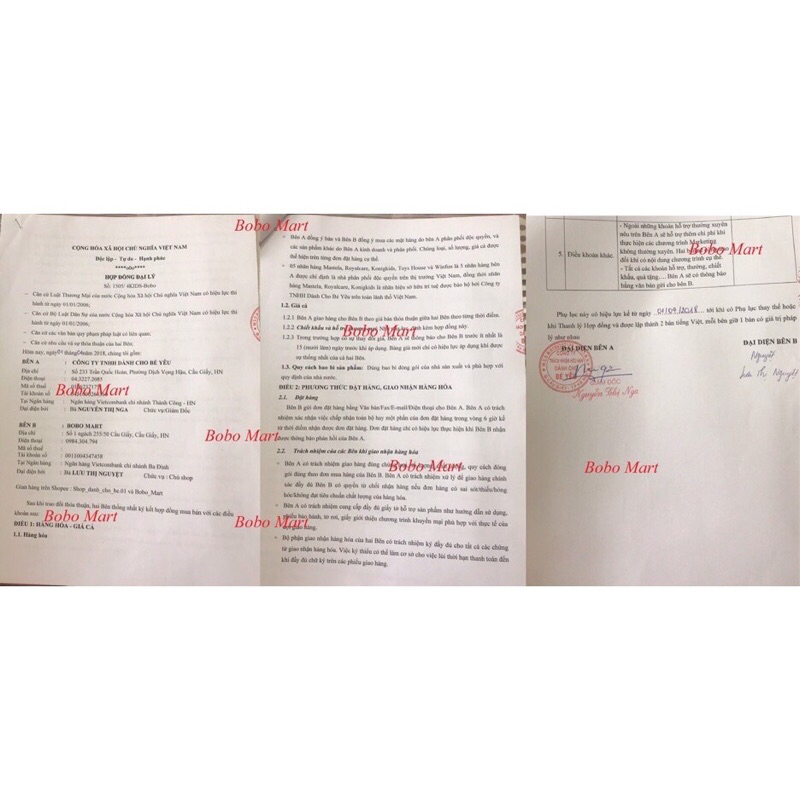 Bobo Mart
CỘNG HÒA XÃ HỘI CHỦ NGHĨA VIỆT NAM
Độc lập - Tự do - Hạnh phúc
HỢP ĐỒNG ĐẠI LÝ
- Căn cứ Luật Thương Mại của nước Cộng Hòa Xã Hội Chủ Nghĩa Việt Nam có hiệu lực thi
hành từ ngày 01/01/2006;
- Căn cứ Bộ Luật Dân Sự của nước Cộng Hòa Xã Hội Chủ Nghĩa Việt Nam có hiệu lực thi
hành từ ngày 01/01/2006;
- Căn cứ các văn bản quy phạm pháp luật có liên quan;
- Căn cứ nhu cầu và sự thỏa thuận của hai Bên;
Hôm nay, ngày 2018, chúng tôi gồm:
BÊN A : CÔNG TY TNHH DÀNH CHO BÉ YÊU
Địa chỉ : Số 233 Trần Quốc Hoàn, Phường Dịch Vọng Hậu, Cầu Giấy, HN
Điện thoại : 04.3227.2085
Mã số thuế
Bobo Mart
Tài khoản số
Tại Ngân hàng : Ngân hàng Vietcombank chi nhánh Thành Công - HN
Đại diện bởi : Bà NGUYỄN THỊ NGA Chức vụ:Giám Đốc
BÊN B : BOBO MART
Địa chỉ : Số 1 ngách 255/50 Cầu Giấy, Cầu Giấy, HN
Điện thoại : 0984.304.794
Bobo Mart
Mã số thuế
Tài khoản số : 0011004347458
Tại Ngân hàng : Ngân hàng Vietcombank chi nhánh Ba Đình
Đại diện bởi : Bà LƯU THỊ NGUYỆT Chức vụ : Chủ shop
Gian hàng trên Shopee : Shop_danh_cho_be.01 và Bobo_Mart
Sau khi trao đổi thỏa thuận, hai Bên thống nhất ký kết hợp đồng mua bán với các điều
khoản sau:
Bobo Mart
ĐIỀU 1: HÀNG HÓA - GIÁ CẢ
1.1. Hàng hóa
- Bên A đồng ý bán và Bên B đồng ý mua các mặt hàng do bên A phân phối độc quyền, và
các sản phẩm khác do Bên A kinh doanh và phân phối. Chủng loại, số lượng, giá cả được
thể hiện trên từng đơn đặt hàng cụ thể.
- 05 nhãn hàng Mastela, Royalcare, Konigkids, Toys House và Winfun là 5 nhãn hàng bên
A được chỉ định là nhà phân phối độc quyền trên thị trường Việt Nam, đồng thời nhãn
hàng Mastela, Royalcare, Konigkids là nhãn hiệu sở hữu trí tuệ được bảo hộ bởi Công ty
TNHH Dành Cho Bé Yêu trên toàn lãnh thổ Việt Nam.
1.2. Giá cả
1.2.1 Bên A giao hàng cho Bên B theo giá bán thỏa thuận giữa hai Bên theo từng thời điểm.
1.2.2 Chiết khấu và hỗ kèm hợp đồng này.
Bobo Mart
1.2.3 Trong trường hợp có sự thay đổi giá, Bên A sẽ thông báo cho Bên B trước ít nhất là
15 (mười lăm) ngày trước khi áp dụng. Bảng giá mới chỉ có hiệu lực áp dụng khi được
sự thống nhất của cả hai Bên.
1.3. Quy cách bao bì sản phẩm: Đúng bao bì đóng gói của nhà sản xuất và phù hợp với
quy định của nhà nước.
ĐIỀU 2: PHƯƠNG THỨC ĐẶT HÀNG, GIAO NHẬN HÀNG HÓA
2.1. Đặt hàng
Bên B gửi đơn đặt hàng bằng Văn bản/Fax/E-mail/Điện thoại cho Bên A. Bên A có trách
nhiệm xác nhận việc chấp nhận toàn bộ hay một phần của đơn đặt hàng trong vòng 6 giờ kể
từ thời điểm nhận được đơn đặt hàng. Đơn đặt hàng chỉ có hiệu lực thực hiện khi Bên B nhận
được thông báo phản hồi của Bên A.
2.2. Trách nhiệm của các Bên khi giao nhận hàng hóa
- Bên A có trách nhiệm giao hàng đúng quy cách đóng
Bobo Mart
gói đúng theo đơn mua hàng của Bên B. Bên A có trách nhiệm xử lý để giao hàng chính
xác đầy đủ Bên B có quyền từ chối nhận hàng nếu đơn hàng có sai sót/thiếu/hỏng
hóc/không đạt tiêu chuẩn chất lượng của hàng hóa.
- Bên A có trách nhiệm cung cấp đầy đủ giấy tờ hỗ trợ sản phẩm như hướng dẫn sử dụng,
phiếu bảo hành, tờ rơi, giấy giới thiệu chương trình khuyến mại phù hợp với thực tế của
đợt giao hàng.
Bobo Mart
- Bộ phận giao nhận hàng hóa của hai Bên có trách nhiệm ký đầy đủ cho tất cả các chứng
từ giao nhận hàng hóa. Việc ký thiếu có thể làm cơ sở cho việc lùi thời hạn thanh toán cho
đến đầy đủ chữ ký trên các phiếu giao hàng.
5. Điều khoản khác.
- Ngoài những khoản hỗ trợ thường xuyên
nêu trên Bên A sẽ hỗ trợ thêm chi phí khi
thực hiện các chương trình Marketing
không thường xuyên. Hai bên
Bobo Mart
đổi khi có nội dung chương trình cụ thể.
- Tất cả các khoản hỗ trợ, thưởng, chiết
khấu, quà tặng.... Bên A sẽ có thông báo
bằng văn bản gửi cho bên B.
Phụ lục này có hiệu lực kể từ ngày 01/09/2018 tới khi có Phụ lục thay thế hoặc
khi Thanh lý Hợp đồng và được lập thành 2 bản tiếng Việt, mỗi bên giữ 1 bản có giá trị pháp
lý như nhau
ĐẠI DIỆN BÊN A
ĐẠI DIỆN BÊN B
DÀNH CHO
BÉ YÊU
GIÁM ĐỐC
Nguyễn Thị Nga
Nguyệt
Lưu Thị Nguyệt
Bobo Mart